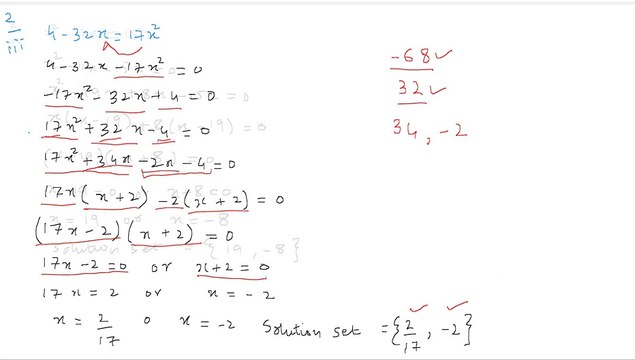 2
iii
4-32x=17x²
4-32x-17x²=0
-17x²-32x+4=0
17x²+32x-4=0
17x²+34x-2x-4=0
17x(x+2)-2(x+2)=0
(17x-2)(x+2)=0
17x-2=0 or x+2=0
17x=2 or x=-2
x=2/17 o x=-2 Solution set ={2/17, -2}
-68✓
32✓
34, -2